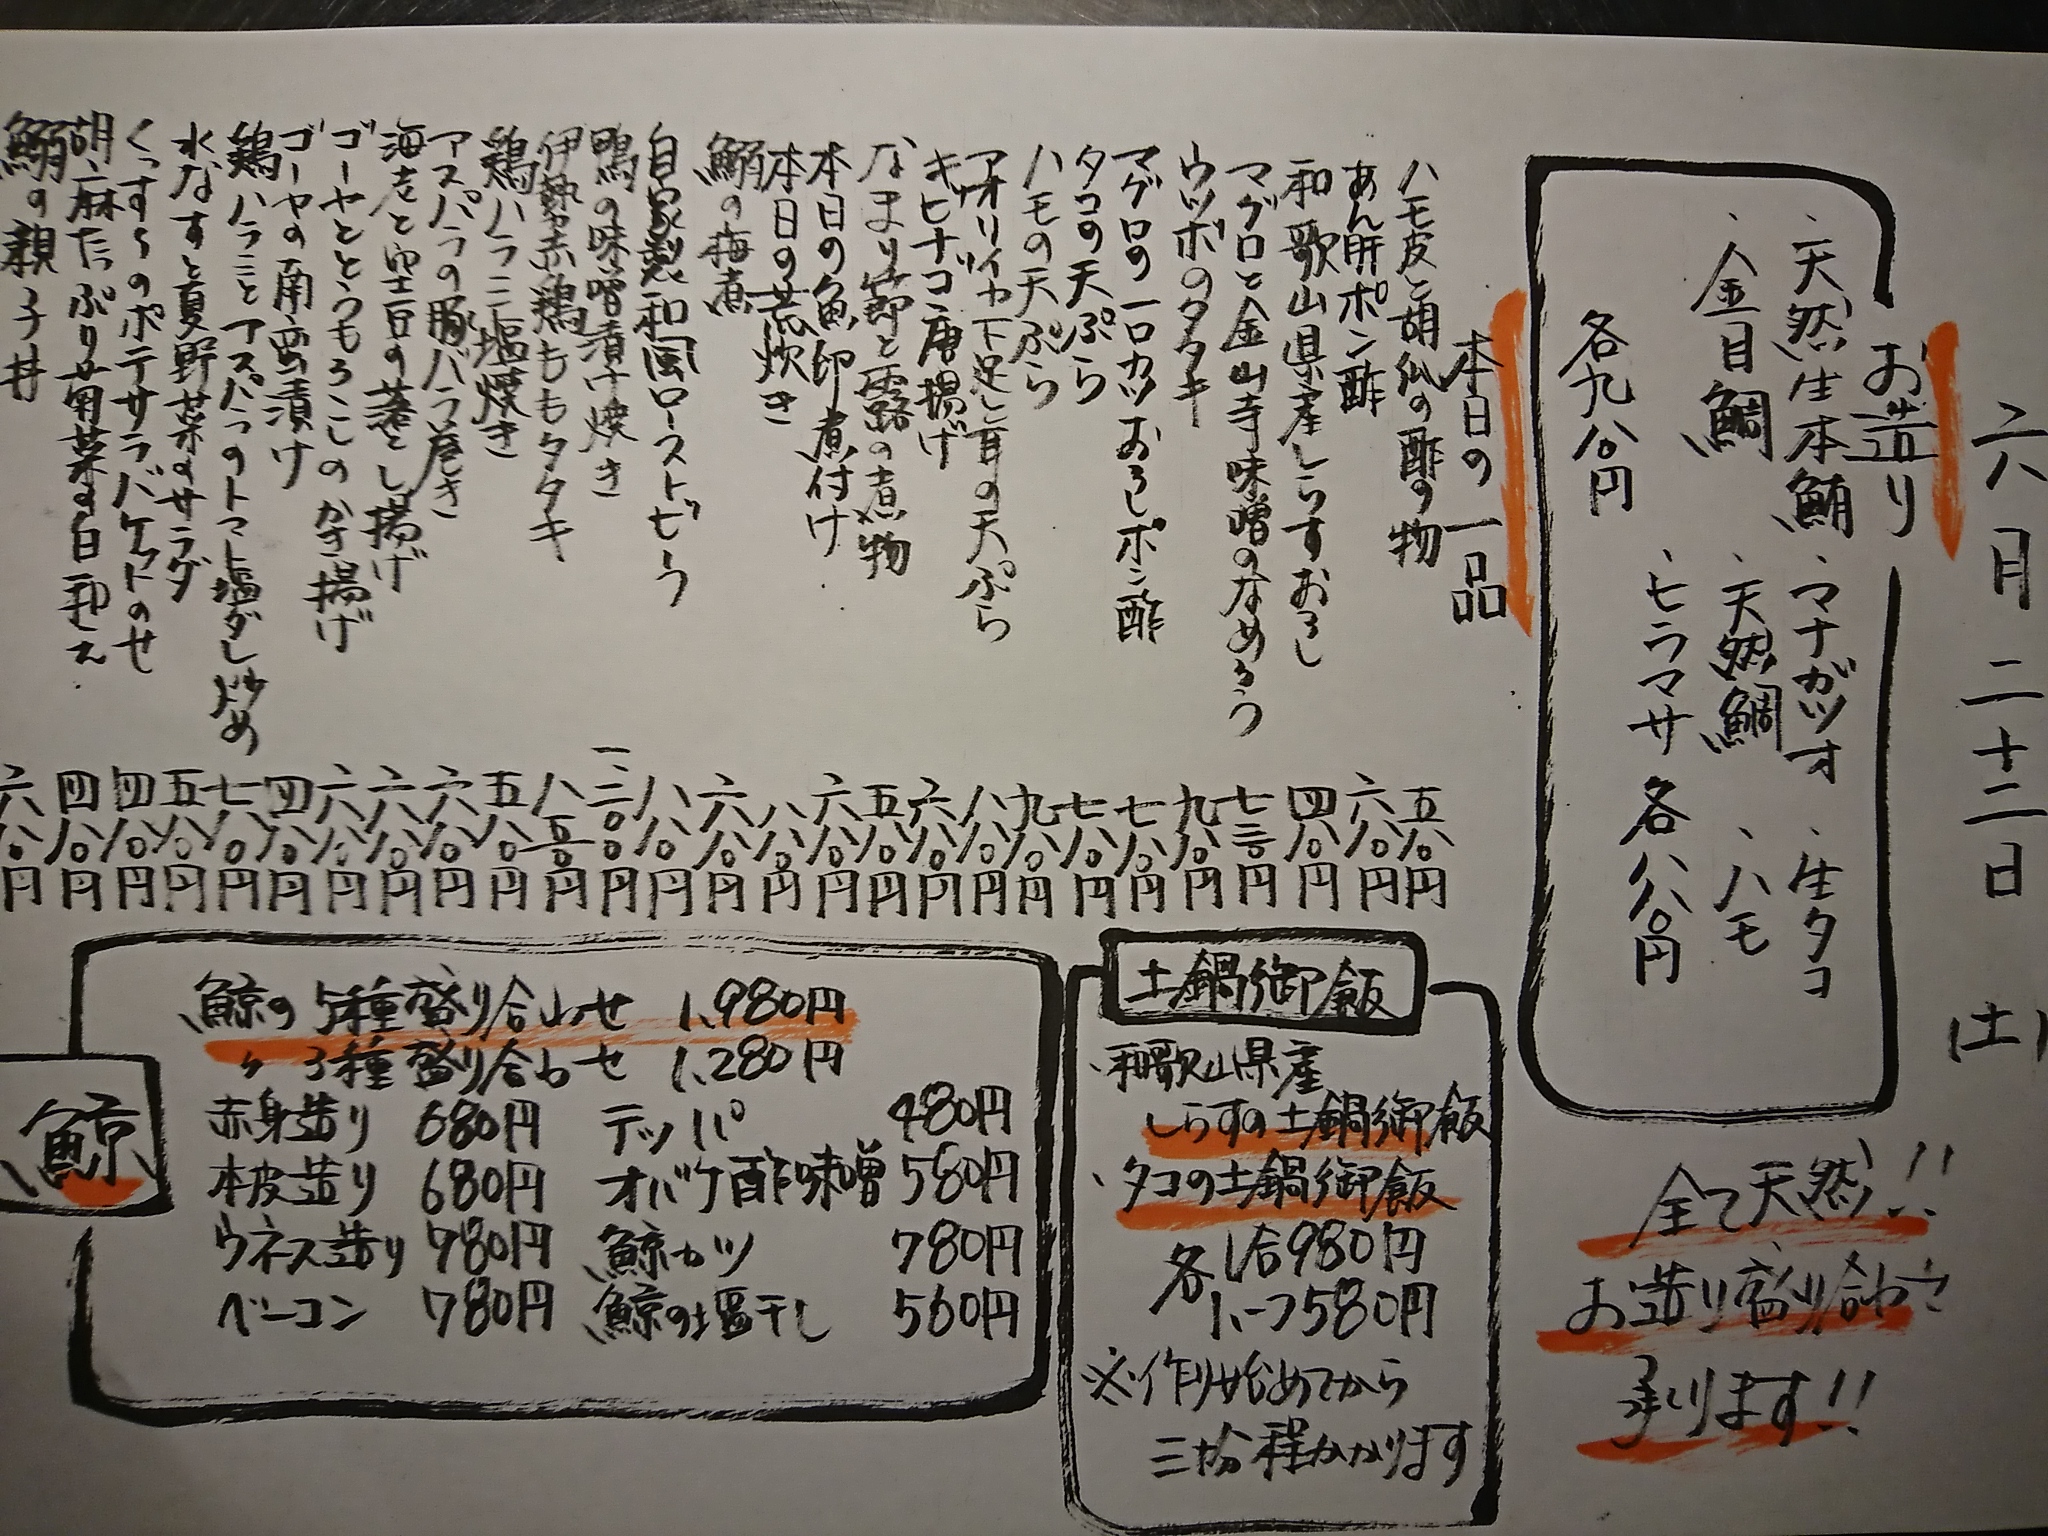 六月二十二日(土)
お造り
・天然生本鮪
・マナガツオ
・生タコ
・金目鯛
・天然鯛
・ハモ
・ヒラマサ
各九八〇円
各八八〇円
全て天然!!
お造り盛り合わせ
承ります!!
本日の一品
ハモ皮と胡瓜の酢の物 五八〇円
あん肝ポン酢 六八〇円
和歌山県産しらすおろし 四八〇円
マグロと金山寺味噌のなめろう 七三〇円
ウツボのタタキ 九八〇円
マグロの一口カツおろしポン酢 七八〇円
タコの天ぷら 七八〇円
ハモの天ぷら 九八〇円
アオリイカ下足と耳の天ぷら 八八〇円
キビナゴ唐揚げ 六八〇円
なまり節と蕗の煮物 五八〇円
本日の魚卵煮付け 六八〇円
本日の荒炊き 八八〇円
鰯の梅煮 六八〇円
自家製和風ローストビーフ 八八〇円
鴨の味噌漬け焼き 一、二〇〇円
伊勢赤鶏ももタタキ 八五〇円
鶏ハラミ塩焼き 五八〇円
アスパラの豚バラ巻き 六八〇円
海老と空豆の落とし揚げ 六八〇円
ゴーヤととうもろこしのかき揚げ 六八〇円
ゴーヤの南蛮漬け 四八〇円
鶏ハラミとアスパラのトマト塩ダレ炒め 七八〇円
水なすと夏野菜のサラダ 五八〇円
のポテサラバケットのせ 四八〇円
胡麻たっぷり菊菜の白和え 四八〇円
鰯の親子丼 六八〇円
土鍋御飯
・和歌山県産
しらすの土鍋御飯
・タコの土鍋御飯
各1合980円
ハーフ580円
※作り始めてから
三十分程かかります
鯨
鯨の5種盛り合わせ 1,980円
〃 3種盛り合わせ 1,280円
赤身造り 680円 テッパ 480円
本皮造り 680円 オバケ酢味噌 580円
ウネス造り 780円 鯨カツ 780円
ベーコン 780円 鯨の塩干し 560円